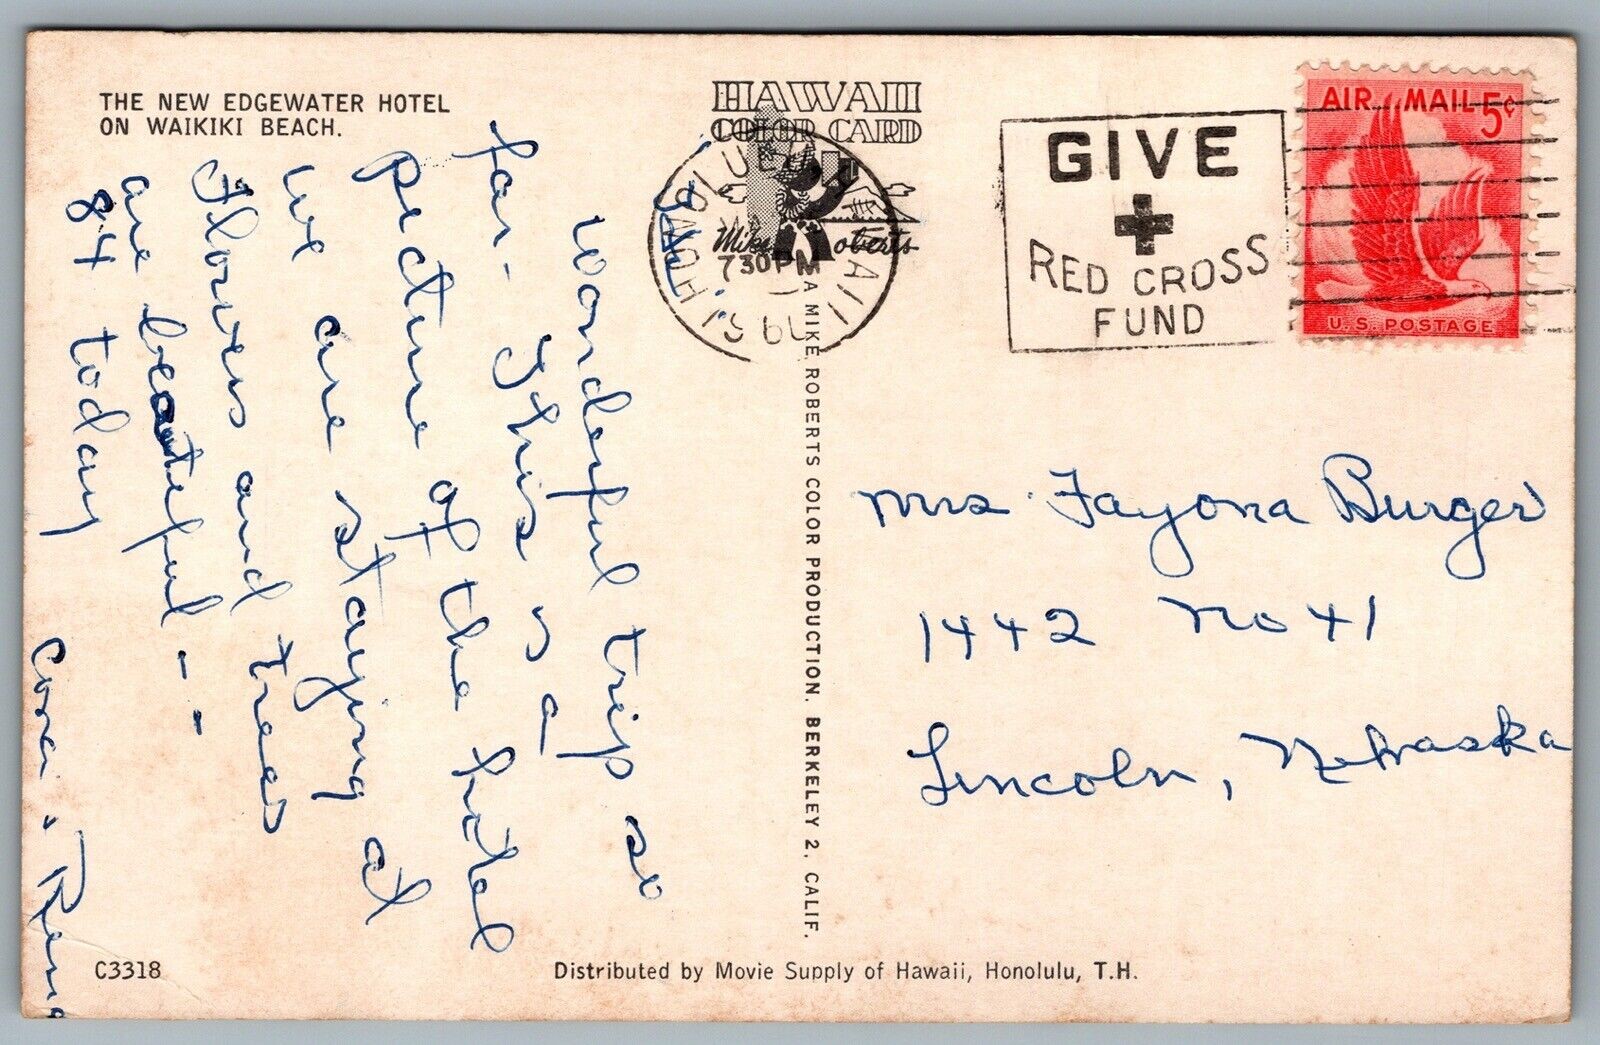 THE NEW EDGEWATER HOTEL
ON WAIKIKI BEACH.
HAWAII
COLOR CARD
Mike Roberts
7 30 PM
1960
HAWAII
GIVE
RED CROSS
FUND
AIR MAIL 5¢
U.S. POSTAGE
wonderful trip so
far - This is a
picture of the hotel
we are staying at
Flowers and trees
are beauteful - -
84 today
Cora & Rena
A MIKE ROBERTS COLOR PRODUCTION. BERKELEY 2. CALIF.
Mrs Fayona Burger
1442 No 41
Lincoln, Nebraska
C3318
Distributed by Movie Supply of Hawaii, Honolulu, T.H.